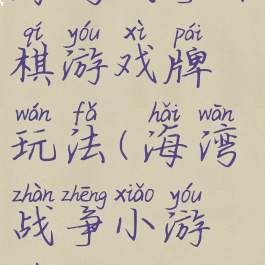 qí yóu xì pái
棋游戏牌
wán fǎ hǎi wān
玩法(海湾
zhàn zhēng xiǎo yóu
战争小游